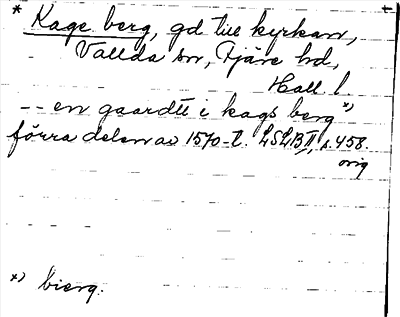 * Kage berg, gd till kyrkan,
Vallda sn, Fjäre hd,
Hall. l.
-- en gaardtt i kags berg *)
förra delen av 1570-t. LSLB II, s. 458.
orig
*) bierg.